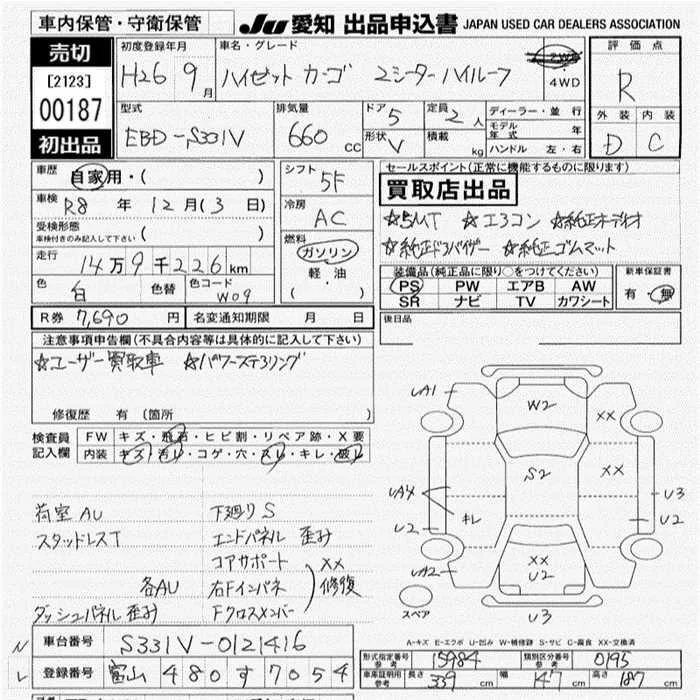 車内保管・守衛保管
JU 愛知 出品申込書 JAPAN USED CAR DEALERS ASSOCIATION
売切
[2123]
00187
初出品
初度登録年月
H26 9月
車名・グレード
ハイゼットカーゴ 2シーターハイルーフ
2WD
4WD
評価点
R
外装 内装
D C
型式
EBD-S331V
排気量
660 cc
ドア 5
形状 V
定員 2 人
積載 kg
ディーラー・並行
モデル年式 年
ハンドル 左・右
車歴
自家用・( )
車検
R8 年 12 月 (3 日)
受検形態
車検付きのみ記入して下さい ( )
走行
14万9千226km
色 白 色替 色コード W09
シフト
5F
冷房
AC
燃料
ガソリン
軽・油
( )
セールスポイント(正常に機能するものに限ります)
買取店出品
☆5MT ☆エアコン ☆純正オーディオ
☆純正ドアバイザー ☆純正ゴムマット
装備品(純正品に限り○をつけてください)
PS PW エアB AW
SR ナビ TV カワシート
新車保証書
有・無
R券 7,690 円 名変通知期限 月 日
後日品
注意事項申告欄(不具合内容等は具体的に記入して下さい)
☆ユーザー買取車 ☆パワーステアリング
修復歴 有 (箇所 )
検査員記入欄
FW キズ・飛石・ヒビ割・リペア跡・X要
内装 キズ・汚レ・コゲ・穴・スレ・キレ・破レ
荷室AU 下廻りS
スタッドレスT エンドパネル 歪み
コアサポート XX
各AU 右Fインパネ 修復
ダッシュパネル歪み Fクロスメンバー
UA1
W2
XX
S2
XX
UA4
U2
キレ
U3
U2
XX
U2
UA2
スペア
U3
A-キズ E-エクボ U-凹み W-補修跡 S-サビ C-腐食 XX-交換済
車台番号 S331V-0121416
登録番号 富山 480 す 7054
型式指定番号 参考 15984 類別区分番号 参考 0195
車庫証明用 参考 長さ 339 cm 幅 147 cm 高さ 187 cm